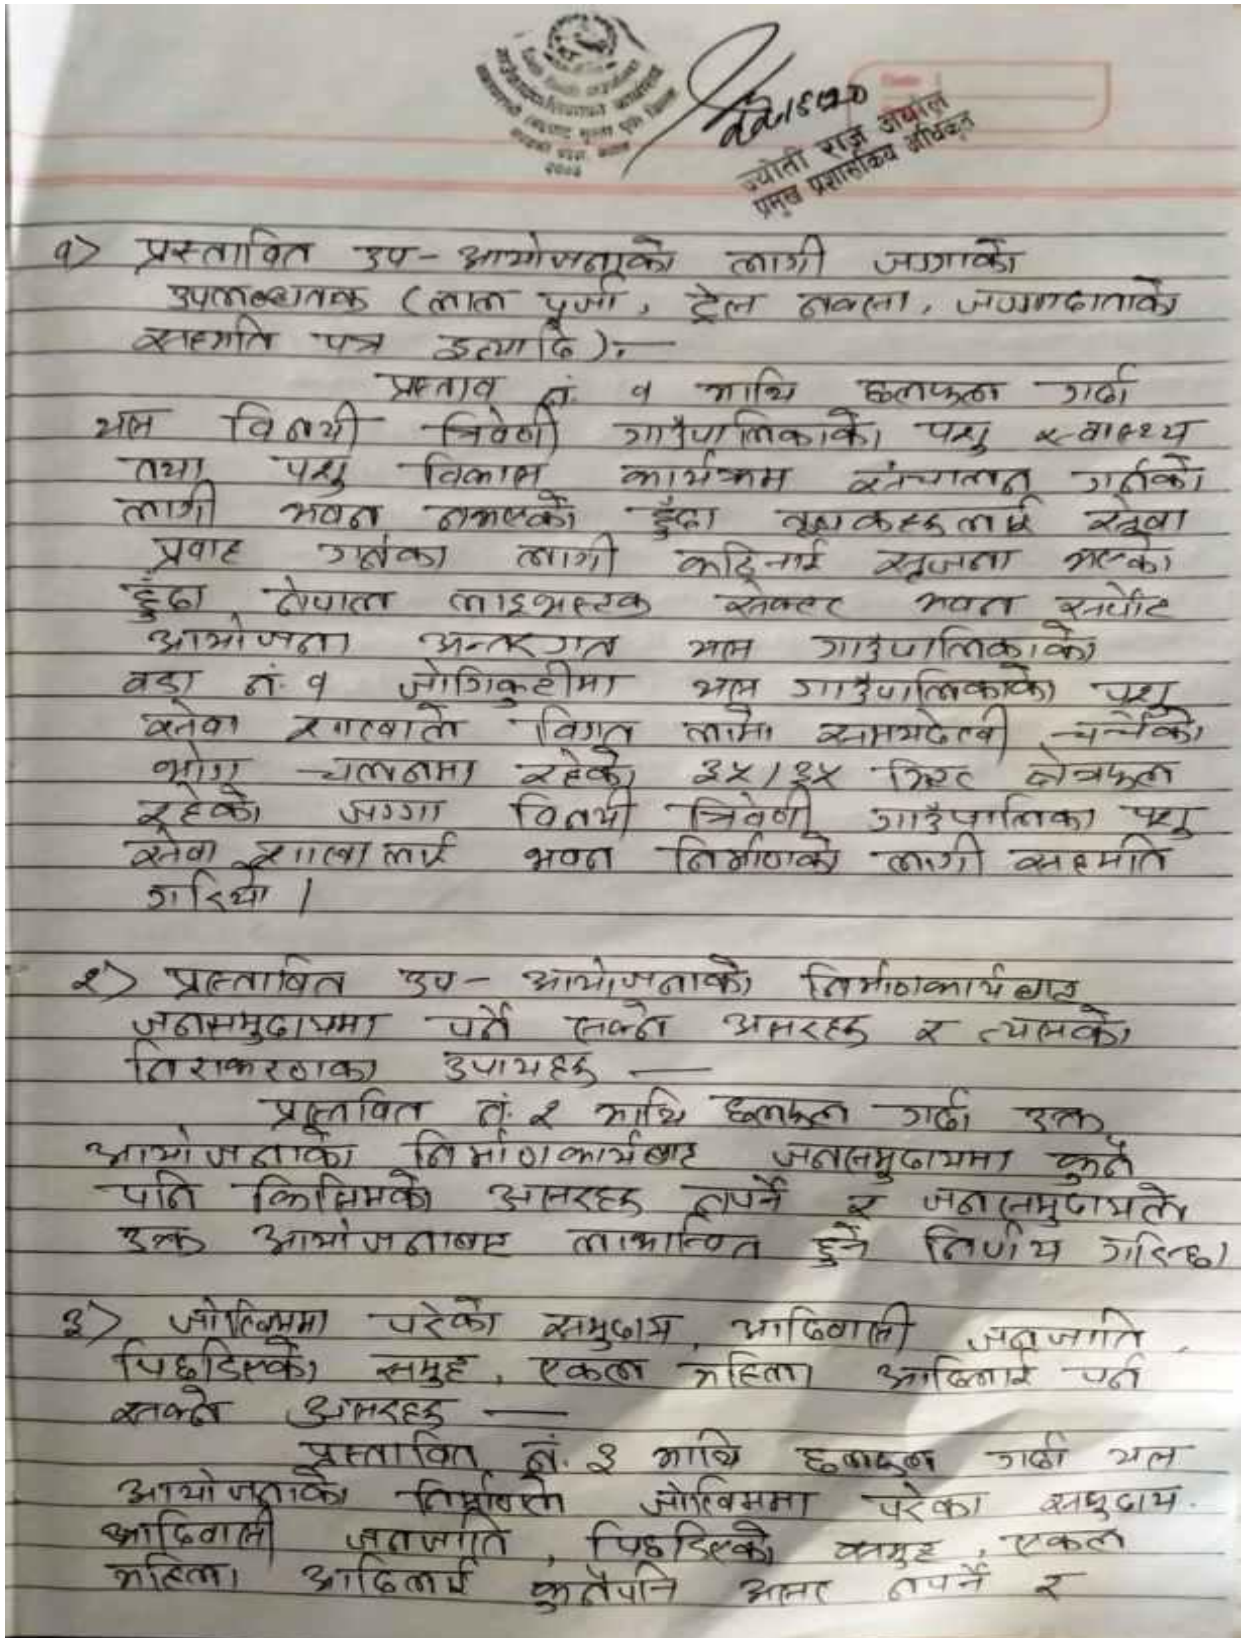 ज्योती राज अर्याल
प्रमुख प्रशासकिय अधिकृत
१) प्रस्तावित उप-आयोजनाको लागी जग्गाको
उपलब्धता (लाल पूर्जा, ट्रेस नक्सा, जग्गादाताको
सहमति पत्र इत्यादि):-
प्रस्ताव नं. १ माथि छलफल गर्दा
यस विनयी त्रिवेणी गाउँपालिकाको पशु स्वास्थ्य
तथा पशु विकास कार्यक्रम संचालन गर्नको
लागी भवन नभएको हुँदा कृषकहरुलाई सेवा
प्रवाह गर्नका लागी कठिनाई सृजना भएको
हुँदा नेपाल लाइभस्टक सेक्टर भवन सपोर्ट
आयोजना अन्तरगत यस गाउँपालिकाको
वडा नं. १ जोगिकुटीमा यस गाउँपालिकाको पशु
सेवा शाखाले विगत लामो समयदेखी चर्चेको
भोग चलनमा रहेको ३५/३५ फिट क्षेत्रफल
रहेको जग्गा विनयी त्रिवेणी गाउँपालिका पशु
सेवा शाखा लाई भवन निर्माणको लागी सहमति
गरियो।
२) प्रस्तावित उप-आयोजनाको निर्माणकार्यबाट
जनसमुदायमा पर्न सक्ने असरहरु र त्यसको
निराकरणका उपायहरु —
प्रस्तावित नं. २ माथि छलफल गर्दा उक्त
आयोजनाको निर्माणकार्यबाट जनसमुदायमा कुनै
पनि किसिमको असरहरु नपर्ने र जनसमुदायले
उक्त आयोजनाबाट लाभान्वित हुने निर्णय गरिन्छ।
३) जोखिममा परेको समुदाय, आदिवासी जनजाति,
पिछडिएको समुह, एकल महिला आदिलाई पर्न
सक्ने असरहरु —
प्रस्तावित नं. ३ माथि छलफल गर्दा यस
आयोजनाको निर्माणले जोखिममा परेका समुदाय.
आदिवासी जनजाति, पिछडिएको समुह, एकल
महिला आदिलाई कुनैपनि असर नपर्ने र